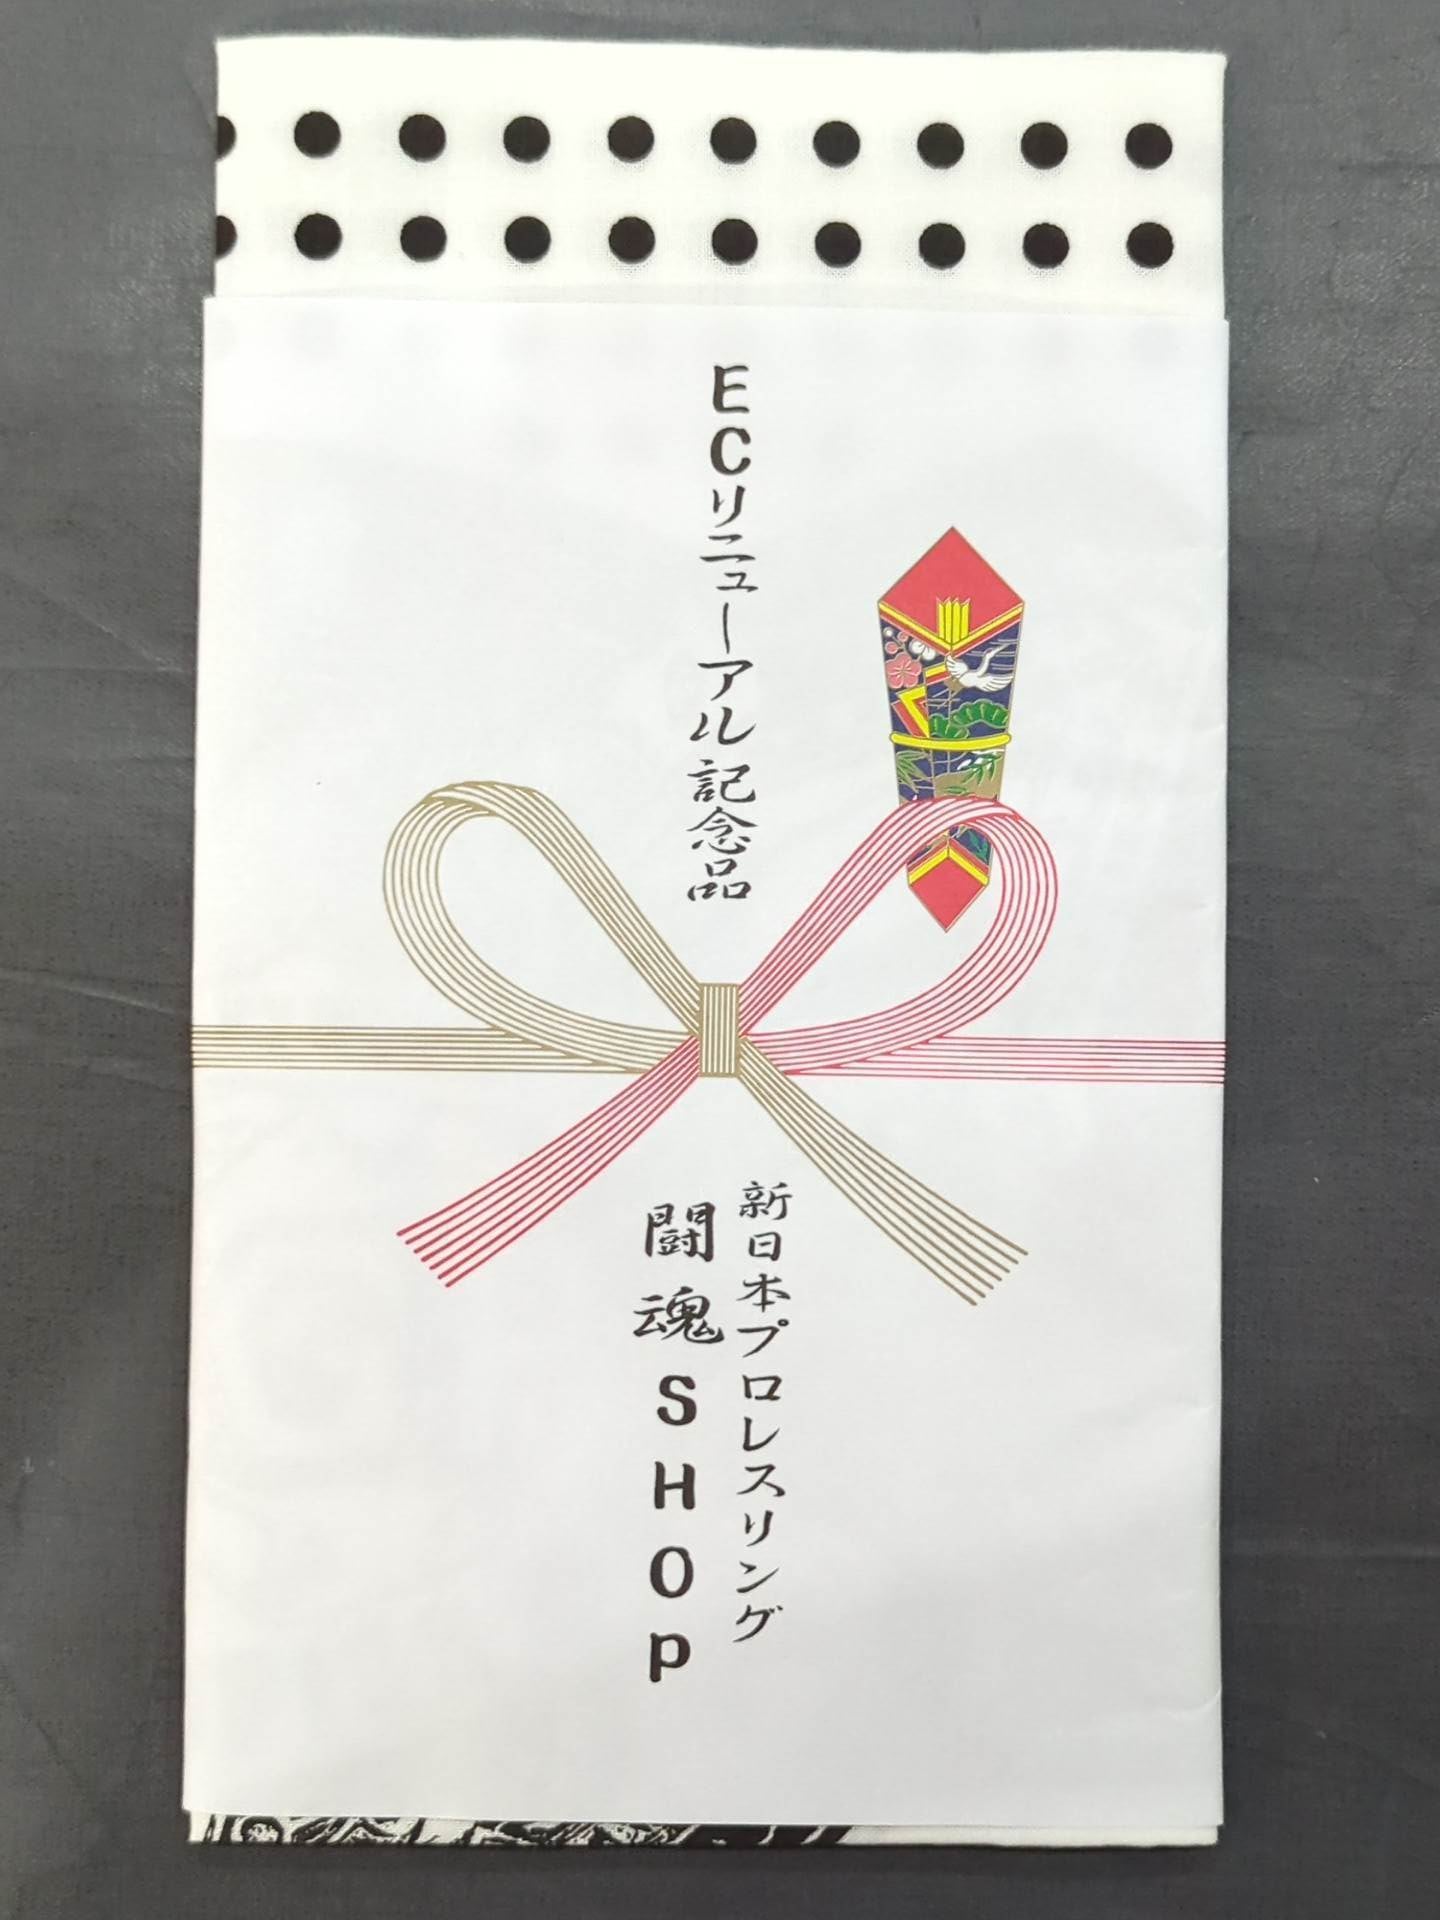 ECリニューアル記念品
新日本プロレスリング
闘魂SHOP